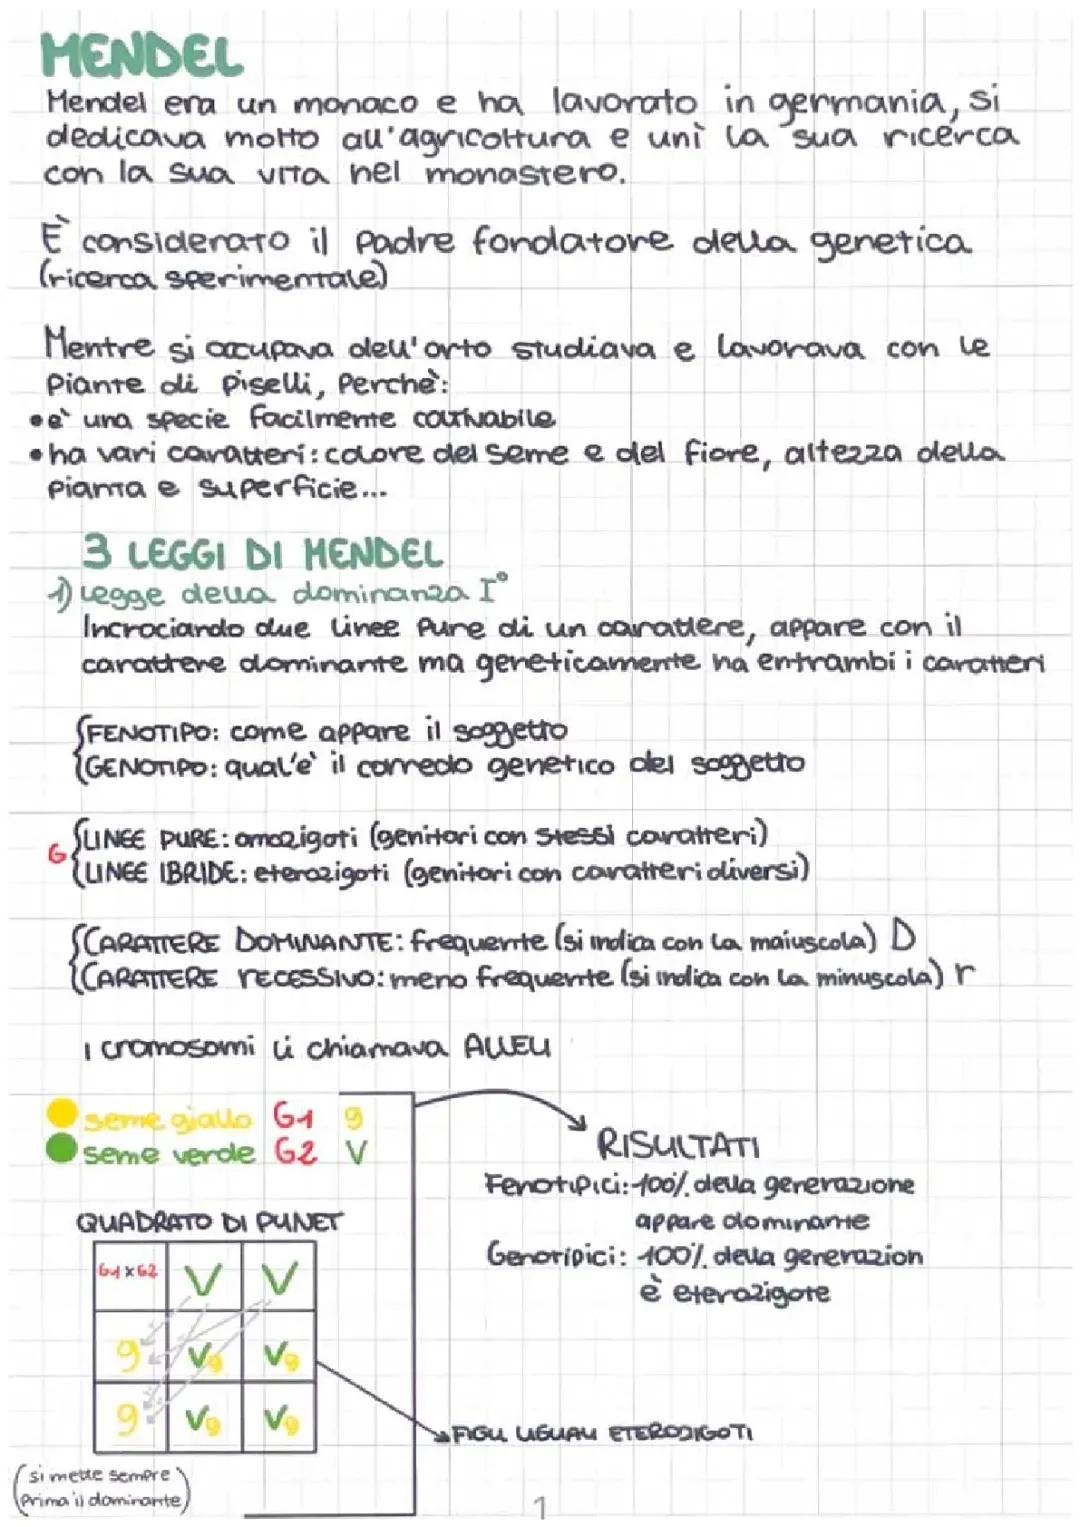 MENDEL
Mendel era un monaco e ha lavorato in germania, si
dedicava molto all'agricoltura e unì la sua ricerca
con la sua vita nel monastero.
È considerato il padre fondatore della genetica
(ricerca sperimentale)
Mentre si occupava dell'orto studiava e lavorava con le
piante di piselli, perchè:
•è una specie facilmente coltivabile
•ha vari caratteri: colore del seme e del fiore, altezza della
pianta e superficie...
3 LEGGI DI MENDEL
1) legge della dominanza I°
Incrociando due linee pure di un carattere, appare con il
carattere dominante ma geneticamente ha entrambi i caratteri
FENOTIPO: come appare il soggetto
GENOTIPO: qual'è il corredo genetico del soggetto
G
LINEE PURE: omozigoti (genitori con stessi caratteri)
LINEE IBRIDE: eterozigoti (genitori con caratteri diversi)
CARATTERE DOMINANTE: frequente (si indica con la maiuscola) D
CARATTERE RECESSIVO: meno frequente (si indica con la minuscola) r
I cromosomi li chiamava ALLELI
seme giallo G1 g
seme verde G2 V
RISULTATI
Fenotipici: 100% della generazione
appare dominante
Genotipici: 100% della generazion
è eterozigote
QUADRATO DI PUNET
G1xG2 V V
g Vg Vg
g Vg Vg
FIGLI UGUALI ETEROZIGOTI
(si mette sempre
prima il dominante)
1